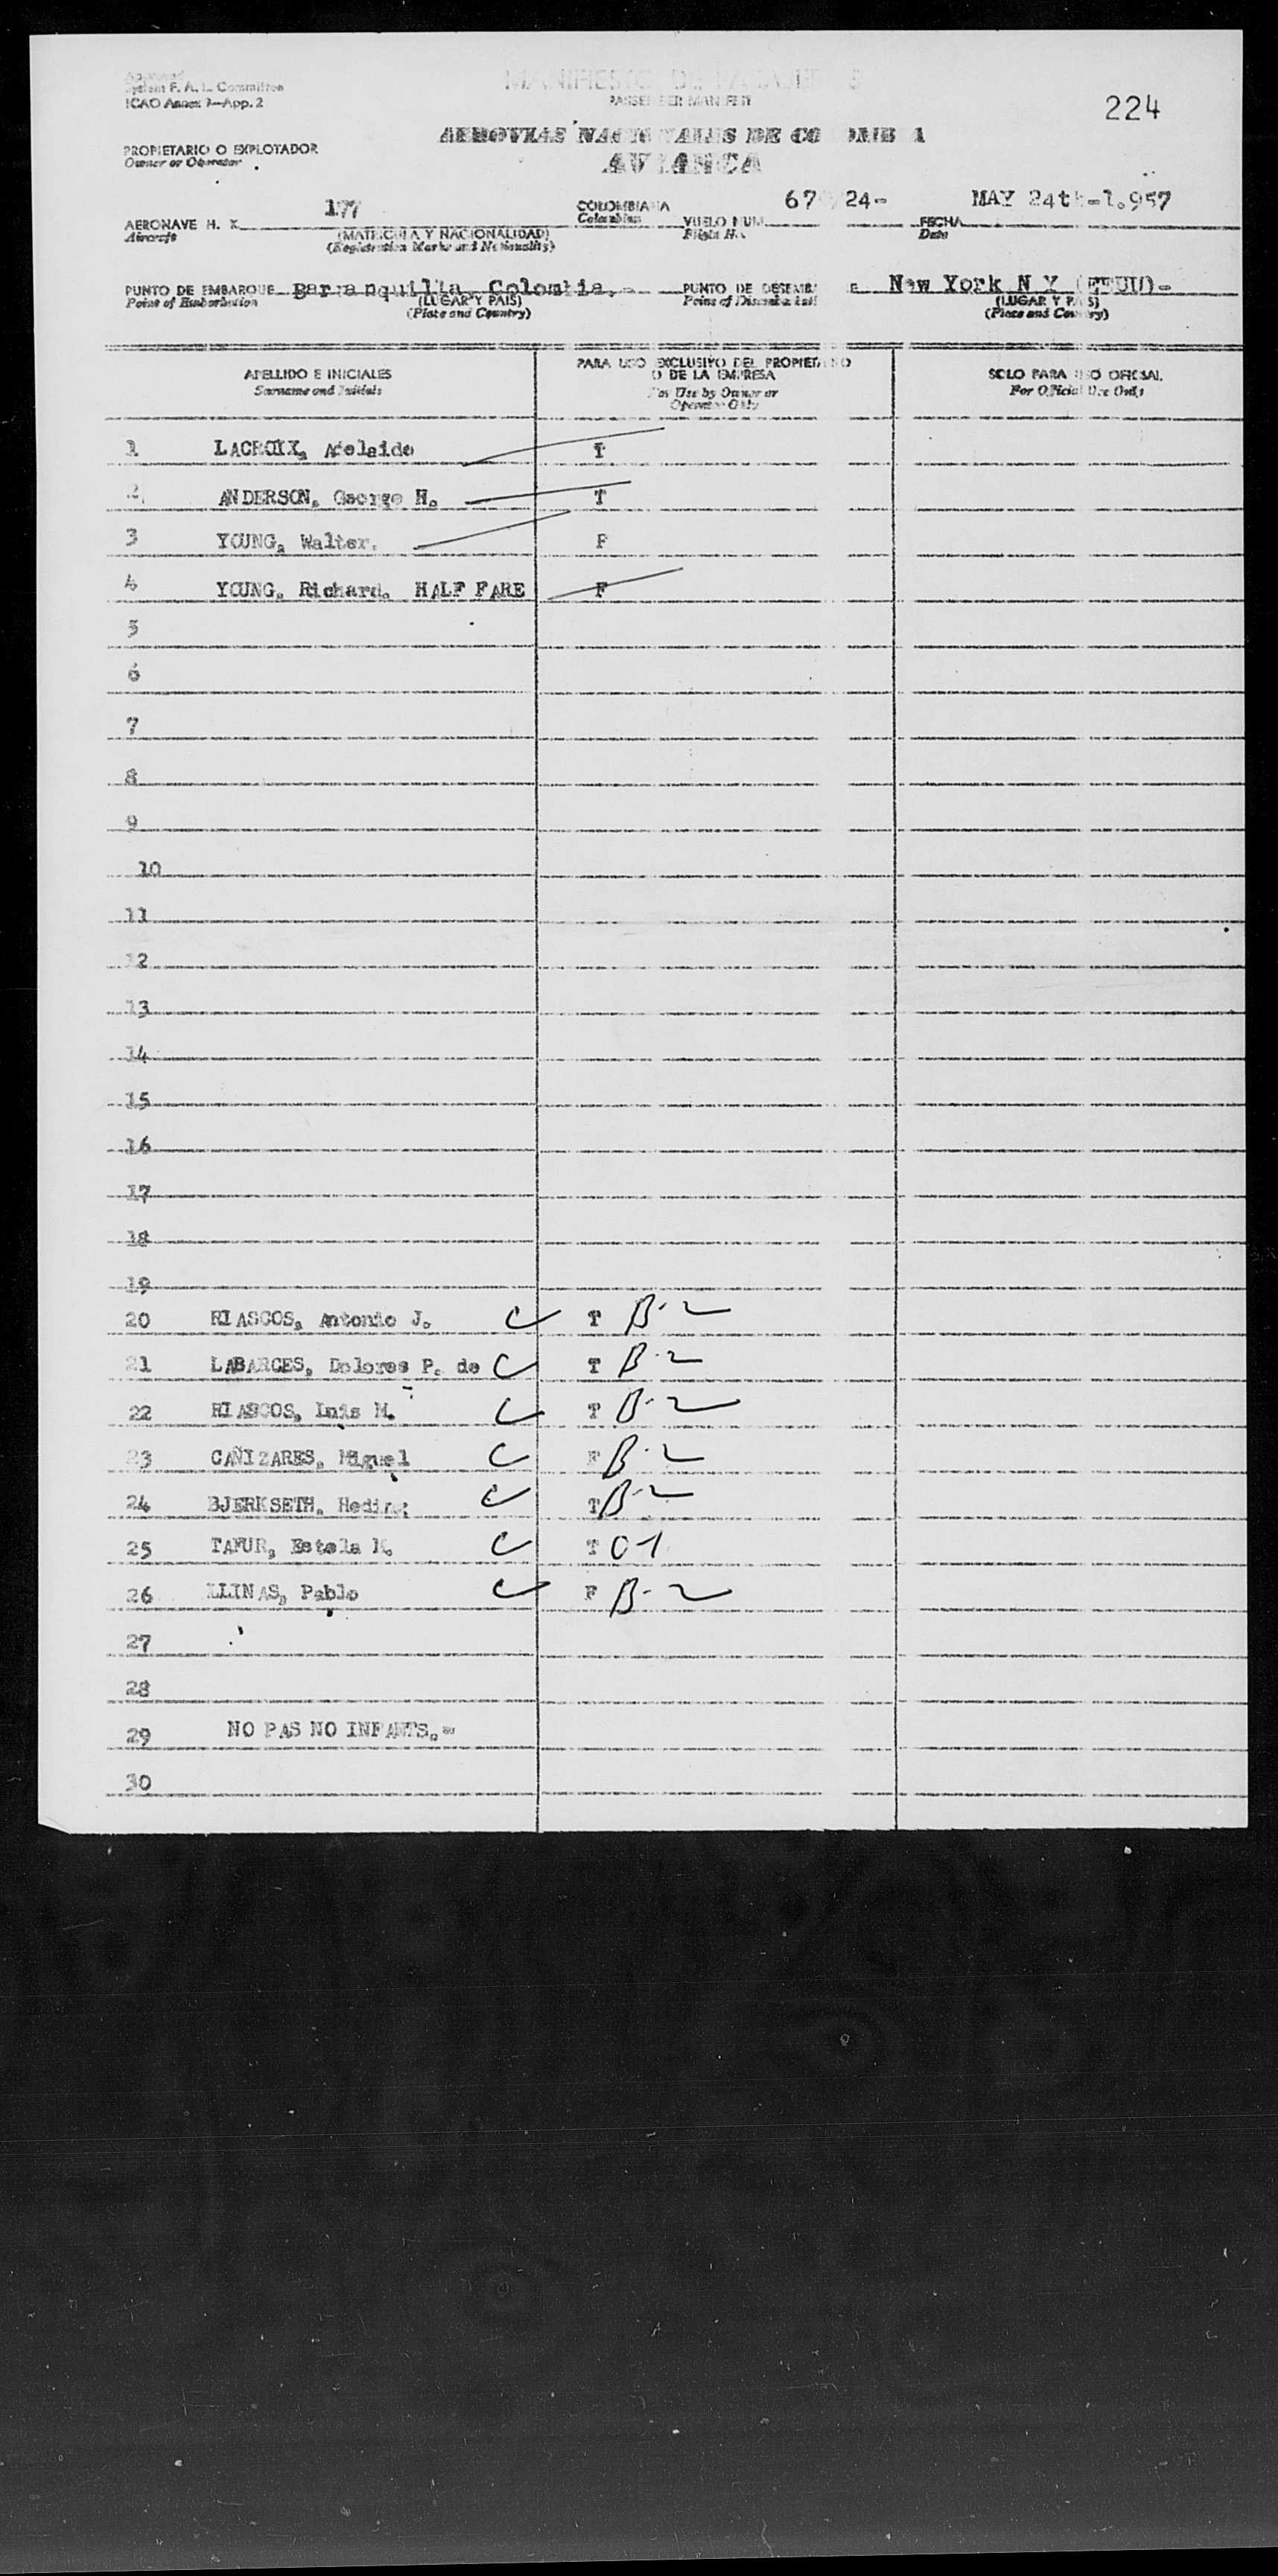 Approved
System F. A. L. Committee
ICAO Annex 9—App. 2
MANIFIESTO DE PASAJEROS
PASSENGER MANIFEST
224
AEROVIAS NACIONALES DE COLOMBIA
AVIANCA
PROPIETARIO O EXPLOTADOR
Owner or Operator
AERONAVE H. K. 177 COLOMBIANA VUELO NUM. 67 24- FECHA MAY 24th-1.957
Aircraft (MATRICULA Y NACIONALIDAD) Colombian Flight No. Date
(Registration Marks and Nationality)
PUNTO DE EMBARQUE Barranquilla, Colombia.- PUNTO DE DESEMB E New York N Y (EEUU)-
Point of Embarkation (LUGAR Y PAIS) Point of Disembarkat (LUGAR Y PAIS)
(Place and Country) (Place and Country)
APELLIDO E INICIALES
Surname and Initials
PARA USO EXCLUSIVO DEL PROPIETARIO
O DE LA EMPRESA
For Use by Owner or
Operator Only
SOLO PARA USO OFICIAL
For Official Use Only
1 LACROIX, Adelaide T
2 ANDERSON, George H. T
3 YOUNG, Walter. F
4 YOUNG, Richard. HALF FARE F
5
6
7
8
9
10
11
12
13
14
15
16
17
18
19
20 RIASCOS, Antonio J. T B-2
21 LABARCES, Dolores P. de T B-2
22 RIASCOS, Luis M. T B-2
23 CAÑIZARES, Miguel F B-2
24 BJERKSETH, Heding T B-2
25 TAFUR, Estela M. T 01
26 LLINAS, Pablo F B-2
27
28
29 NO PAS NO INFANTS.-
30